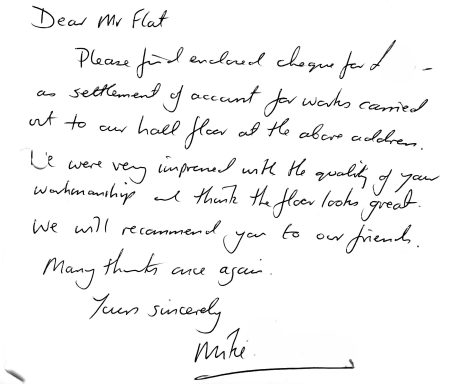 Dear Mr Flat
Please find enclosed cheque for £ -
as settlement of account for works carried
out to our hall floor at the above address.
We were very impressed with the quality of your
workmanship and think the floor looks great.
We will recommend you to our friends.
Many thanks once again.
Yours sincerely
Mike